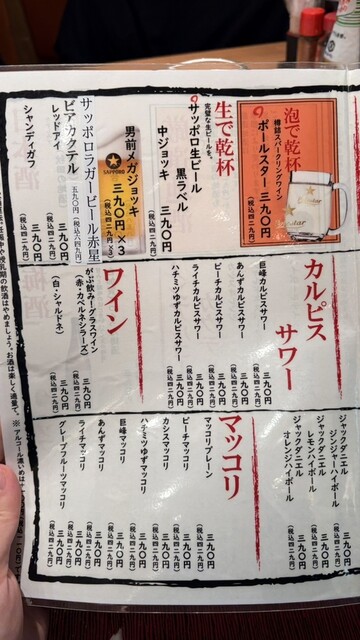 泡で乾杯
樽詰スパークリングワイン
ポールスター 三九〇円
(税込四二九円)
生で乾杯
完璧な生ビールを。
サッポロ生ビール
黒ラベル
中ジョッキ 三九〇円
(税込四二九円)
男前メガジョッキ
三九〇円×3
(税込四二九円×3)
SAPPORO
サッポロラガービール赤星
五九〇円(税込六四九円)
ビアカクテル
レッドアイ 三九〇円
(税込四二九円)
シャンディガフ 三九〇円
(税込四二九円)
カルピスサワー
巨峰カルピスサワー 三九〇円
(税込四二九円)
あんずカルピスサワー 三九〇円
(税込四二九円)
ピーチカルピスサワー 三九〇円
(税込四二九円)
ライチカルピスサワー 三九〇円
(税込四二九円)
ハチミツゆずカルピスサワー 三九〇円
(税込四二九円)
ワイン
がぶ飲みーグラスワイン
(赤・カベルネシラーズ) 三九〇円
(税込四二九円)
(白・シャルドネ) 三九〇円
(税込四二九円)
ジャックダニエル
ジンジャーハイボール
三九〇円
(税込四二九円)
ジャックダニエル
レモンハイボール
三九〇円
(税込四二九円)
ジャックダニエル
オレンジハイボール
三九〇円
(税込四二九円)
マッコリ
マッコリプレーン 三九〇円
(税込四二九円)
ピーチマッコリ 三九〇円
(税込四二九円)
カシスマッコリ 三九〇円
(税込四二九円)
ハチミツゆずマッコリ 三九〇円
(税込四二九円)
巨峰マッコリ 三九〇円
(税込四二九円)
あんずマッコリ 三九〇円
(税込四二九円)
ライチマッコリ 三九〇円
(税込四二九円)
グレープフルーツマッコリ 三九〇円
(税込四二九円)
や授乳期の飲酒はやめましょう。お酒は楽しく適量で。 ※アルコール濃いめは